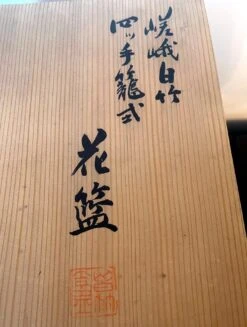 嵯峨白竹
四ッ手籠式
花籃